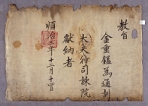 教旨
金重鎰爲通訓
大夫行司諫院
獻納者
順治 年十二月 日